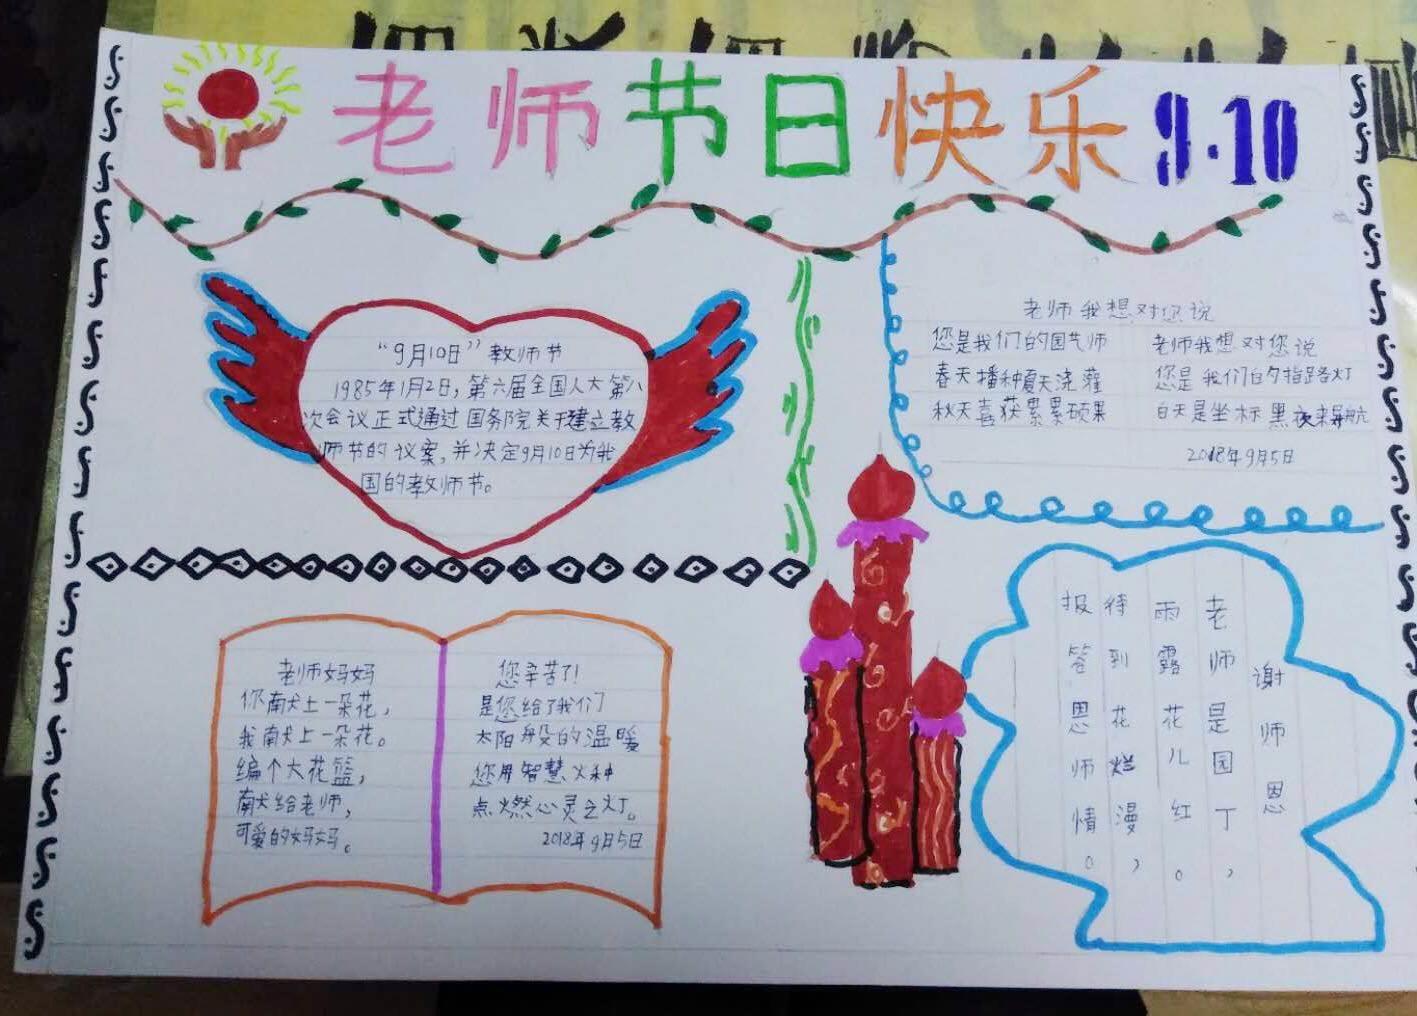 老师节日快乐 9.10
“9月10日”教师节
1985年1月2日，第六届全国人大第八
次会议正式通过国务院关于建立教
师节的议案，并决定9月10日为我
国的教师节。
老师我想对您说
您是我们的园艺师
春天播种夏天浇灌
秋天喜获累累硕果
老师我想对您说
您是我们的指路灯
白天是坐标黑夜来导航
2018年9月5日
老师妈妈
你献上一朵花，
我献上一朵花。
编个大花篮，
献给老师，
可爱的妈妈。
您辛苦了！
是您给了我们
太阳般的温暖
您用智慧火种
点燃心灵之灯。
2018年9月5日
谢师恩
老师是园丁，
雨露花儿红。
待到花烂漫，
报答恩师情。